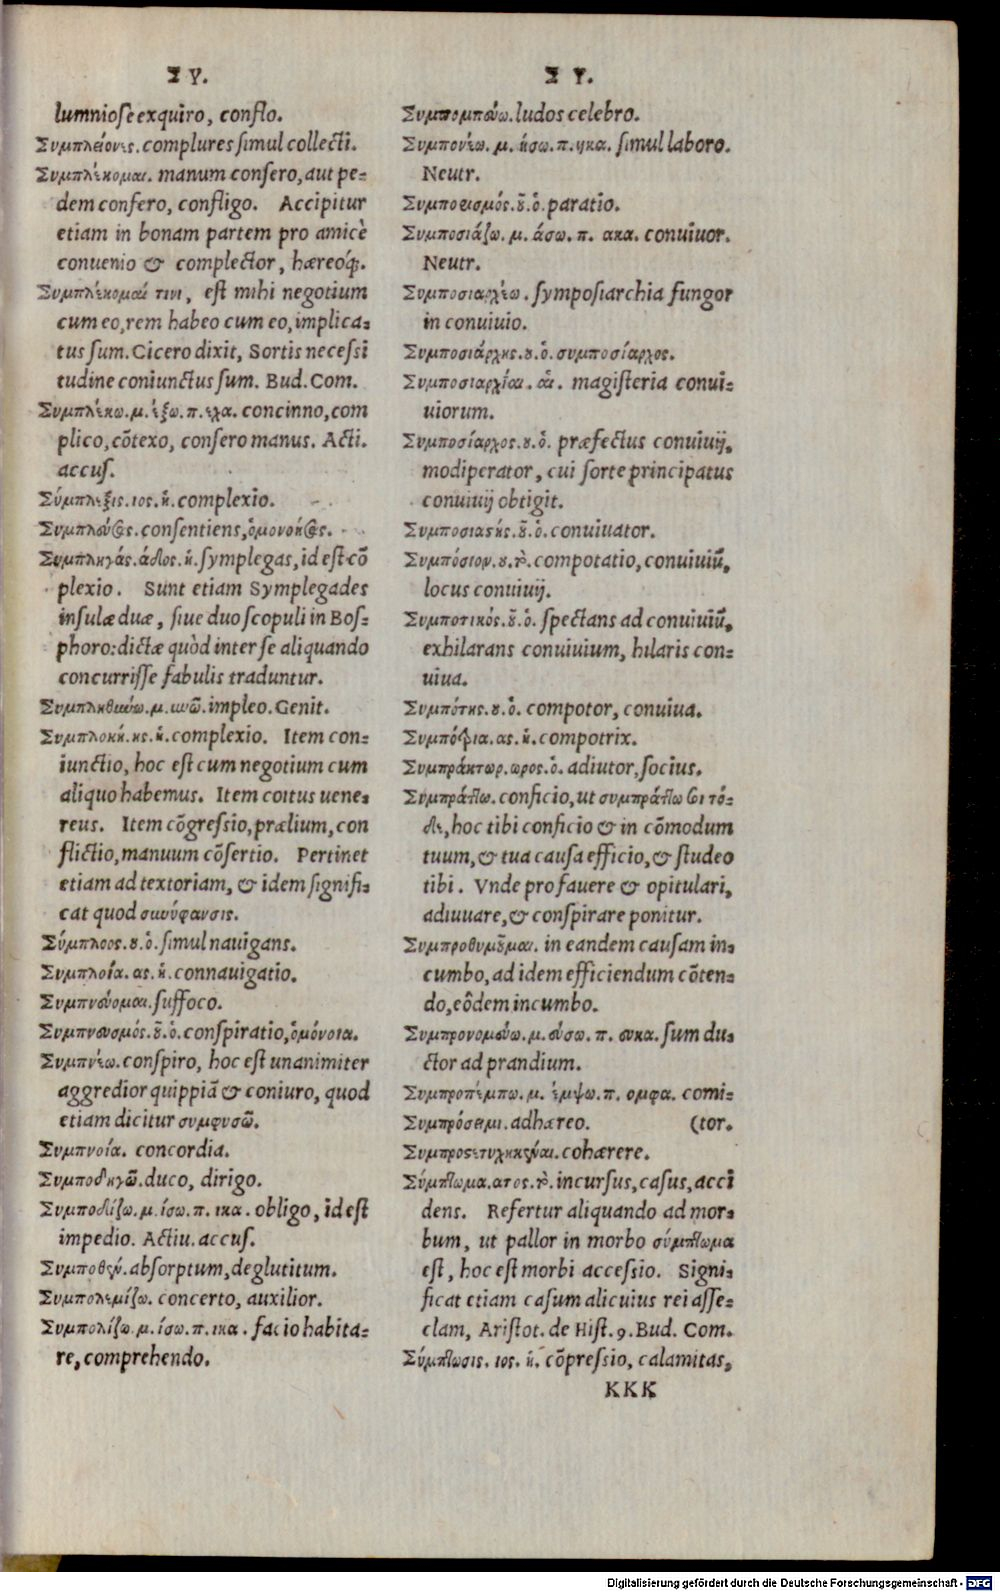 ΣΥ.
lumniose exquiro, conflo.
Συμπλείονες. complures simul collecti.
Συμπλέκομαι. manum consero, aut pe-
dem confero, confligo. Accipitur
etiam in bonam partem pro amicè
conuenio & complector, hæreoq́;.
Συμπλέκομαί τινι, est mihi negotium
cum eo, rem habeo cum eo, implica-
tus sum. Cicero dixit, Sortis necessi
tudine coniunctus sum. Bud. Com.
Συμπλέκω. μ. έξω. π. εχα. concinno, com
plico, cõtexo, consero manus. Acti.
accus.
Σύμπλεξις. ιος. ἡ. complexio.
Συμπλεύσας. consentiens, ὁμονοήσας.
Συμπληγάς. άδος. ἡ. symplegas, id est cõ
plexio. Sunt etiam Symplegades
insulæ duæ, siue duo scopuli in Bos-
phoro: dictæ quòd inter se aliquando
concurrisse fabulis traduntur.
Συμπληθύνω. μ. υνῶ. impleo. Genit.
Συμπλοκή. ῆς. ἡ. complexio. Item con-
iunctio, hoc est cum negotium cum
aliquo habemus. Item coitus uene-
reus. Item cõgressio, prælium, con
flictio, manuum cõsertio. Pertinet
etiam ad textoriam, & idem signifi-
cat quod συνύφανσις.
Σύμπλοος. ου. ὁ. simul nauigans.
Συμπλοία. ας. ἡ. connauigatio.
Συμπνεύομαι. suffoco.
Συμπνευσμός. οῦ. ὁ. conspiratio, ὁμόνοια.
Συμπνέω. conspiro, hoc est unanimiter
aggredior quippiã & coniuro, quod
etiam dicitur συμφυσῶ.
Συμπνοία. concordia.
Συμποδηγῶ. duco, dirigo.
Συμποδίζω. μ. ίσω. π. ικα. obligo, id est
impedio. Actiu. accus.
Συμποθέν. absorptum, deglutitum.
Συμπολεμίζω. concerto, auxilior.
Συμπολίζω. μ. ίσω. π. ικα. facio habita-
re, comprehendo.
ΣΥ.
Συμπομπεύω. ludos celebro.
Συμπονέω. μ. ήσω. π. ηκα. simul laboro.
Neutr.
Συμποεισμός. οῦ. ὁ. paratio.
Συμποσιάζω. μ. άσω. π. ακα. conuiuor.
Neutr.
Συμποσιαρχέω. symposiarchia fungor
in conuiuio.
Συμποσιάρχης. ου. ὁ. συμποσίαρχος.
Συμποσιαρχίαι. αἱ. magisteria conui-
uiorum.
Συμποσίαρχος. ου. ὁ. præfectus conuiuij,
modiperator, cui sorte principatus
conuiuij obtigit.
Συμποσιαστής. οῦ. ὁ. conuiuator.
Συμπόσιον. ου. τὸ. compotatio, conuiuiũ,
locus conuiuij.
Συμποτικός. οῦ. ὁ. spectans ad conuiuiũ,
exhilarans conuiuium, hilaris con-
uiua.
Συμπότης. ου. ὁ. compotor, conuiua.
Συμπότρια. ας. ἡ. compotrix.
Συμπράκτωρ. ωρος. ὁ. adiutor, socius.
Συμπράττω. conficio, ut συμπράττω σοι τό-
δε, hoc tibi conficio & in cõmodum
tuum, & tua causa efficio, & studeo
tibi. Vnde pro fauere & opitulari,
adiuuare, & conspirare ponitur.
Συμπροθυμοῦμαι. in eandem causam in-
cumbo, ad idem efficiendum cõten-
do, eôdem incumbo.
Συμπρονομεύω. μ. εύσω. π. ευκα. sum du-
ctor ad prandium.
Συμπροπέμπω. μ. έμψω. π. ομφα. comi-
Συμπρόσειμι. adhæreo. (tor.
Συμπροσετυχηκέναι. cohærere.
Σύμπτωμα. ατος. τὸ. incursus, casus, acci
dens. Refertur aliquando ad mor-
bum, ut pallor in morbo σύμπτωμα
est, hoc est morbi accessio. Signi-
ficat etiam casum alicuius rei asse-
clam, Aristot. de Hist. 9. Bud. Com.
Σύμπτωσις. ιος. ἡ. cõpressio, calamitas,
KKK
Digitalisierung gefördert durch die Deutsche Forschungsgemeinschaft - DFG